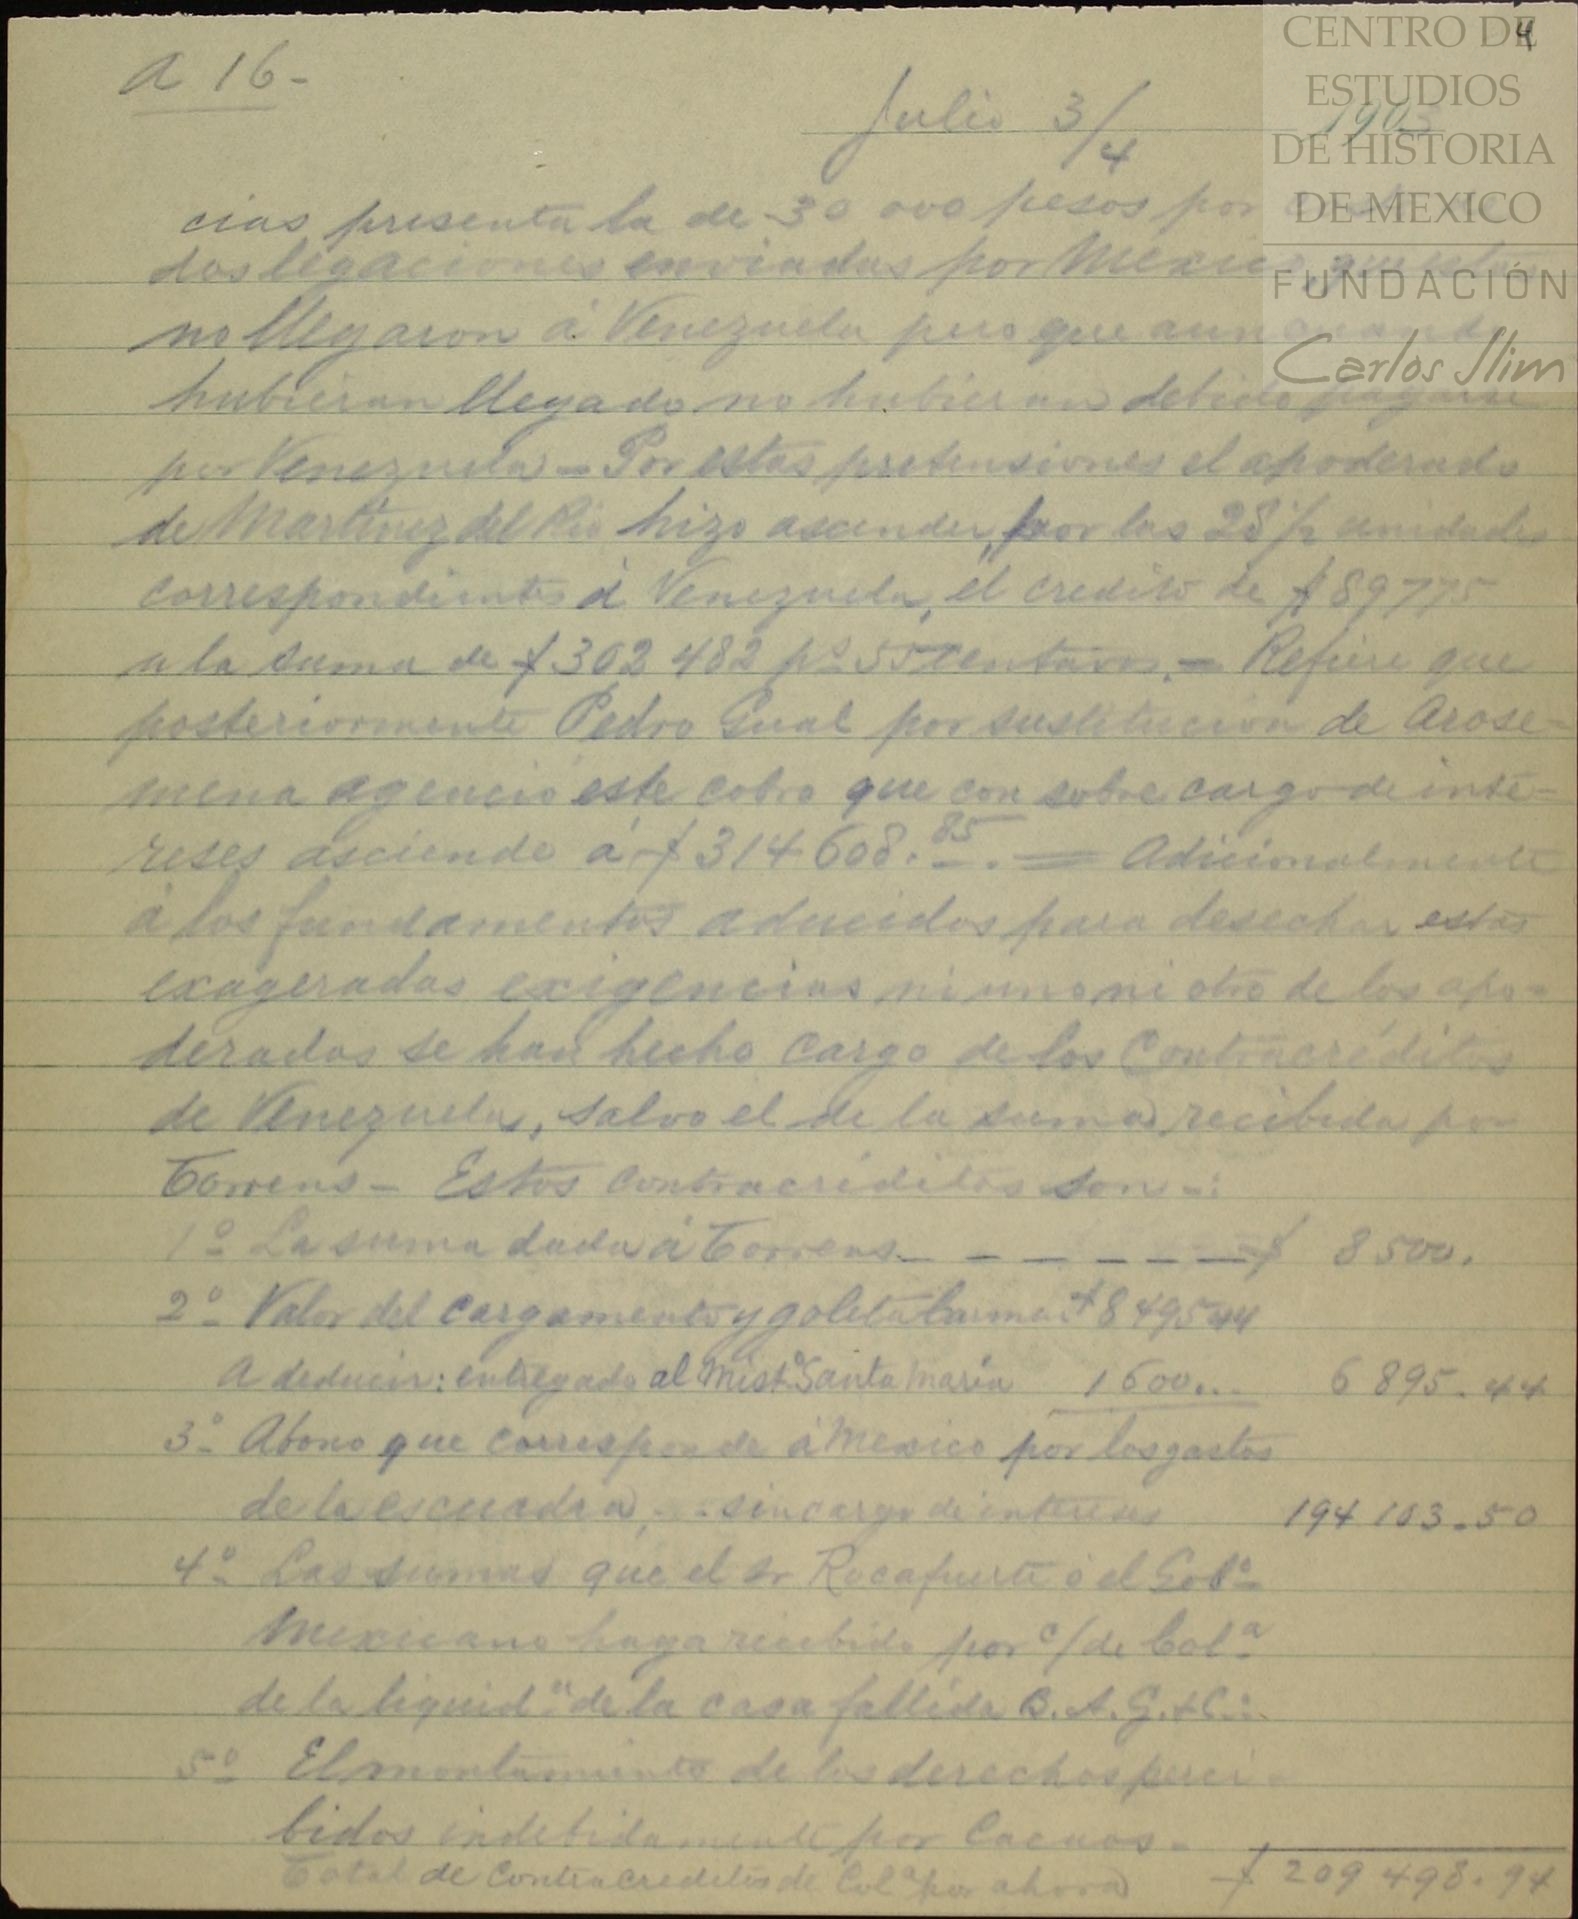 4
CENTRO DE
ESTUDIOS
DE HISTORIA
DE MEXICO
FUNDACIÓN
Carlos Slim
A 16-
Julio 3/4 190
cias presenta la de 30 000 pesos por
dos legaciones enviadas por Mexico, que
no llegaron á Venezuela pero que aun cuando
hubieran llegado no hubieran debido pagarse
por Venezuela = Por estas pretensiones el apoderado
de Martínez del Rio hizo ascender, por las 28 1/2 unidades
correspondientes á Venezuela, el credito de $ 89775
a la suma de $ 302 482 ps 55 centavos. = Refiere que
posteriormente Pedro Gual por sustitucion de Arose-
mena agenció este cobro que con sobre cargo de inte-
reses asciende á $ 314 608.85. = Adicionalmente
á los fundamentos aducidos para desechar estas
exageradas exigencias ni uno ni otro de los apo-
derados se han hecho cargo de los Contracréditos
de Venezuela, salvo el de la suma recibida por
Torrens - Estos contracréditos son -:
1º La suma dada á Torrens - - - - - - $ 8 500.
2º Valor del cargamento y goleta Carmen $ 8495 44
A deducir: entregado al Mistº Santa María 1 600... 6 895.44
3º Abono que corresponde á Mexico por los gastos
de la escuadra, - sin cargo de intereses 194 103.50
4º Las sumas que el Sr Rocafuerte ó el Gobº
Mexicano haya recibido por c/ de Colª
de la liquidn de la casa fallida B. A. G. & Cº.
5º El montamiento de los derechos perci-
bidos indebidamente por Cacaos -
Total de Contracreditos de Colª por ahora $ 209 498.94